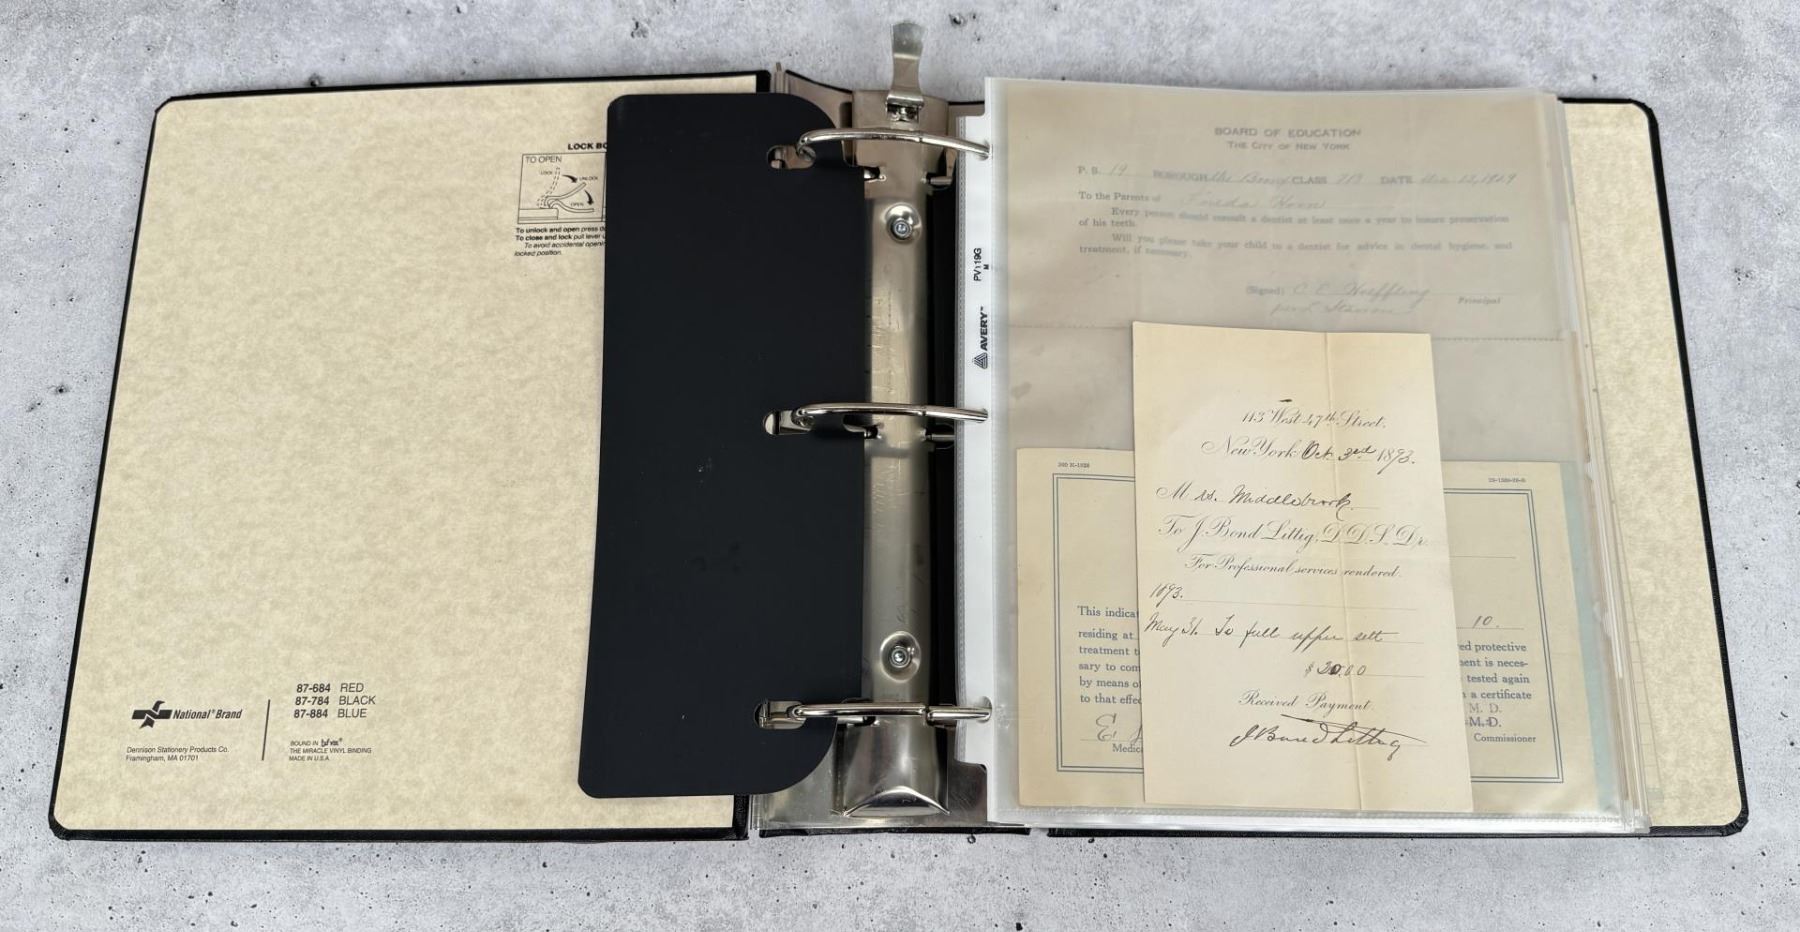 LOCK BO
TO OPEN
LOCK
UNLOCK
OPEN
To unlock and open press d
To close and lock pull lever u
To avoid accidental openin
locked position.
National® Brand
Dennison Stationery Products Co.
Framingham, MA 01701
87-684 RED
87-784 BLACK
87-884 BLUE
BOUND IN
THE MIRACLE VINYL BINDING
MADE IN U.S.A
AVERY™
PV119G
M
BOARD OF EDUCATION
THE CITY OF NEW YORK
P. S. 19 BOROUGH The Bronx CLASS DATE 1929
To the Parents of
Every person should consult a dentist at least once a year to insure preservation
of his teeth.
Will you please take your child to a dentist for advice in dental hygiene, and
treatment, if necessary.
(Signed) C. E. Hoeffling
Principal
113 West 47th Street.
New York Oct. 3rd 1893.
Mrs. Middlebrook.
To J. Bond Littig, D.D.S. Dr.
For Professional services rendered.
1893.
May 31. To full upper sett
$ 30.00
Received Payment.
J Bond Littig
This indica
residing at
treatment t
sary to com
by means of
to that effec
Medic
10.
ed protective
ment is neces-
tested again
a certificate
M. D.
M.D.
Commissioner